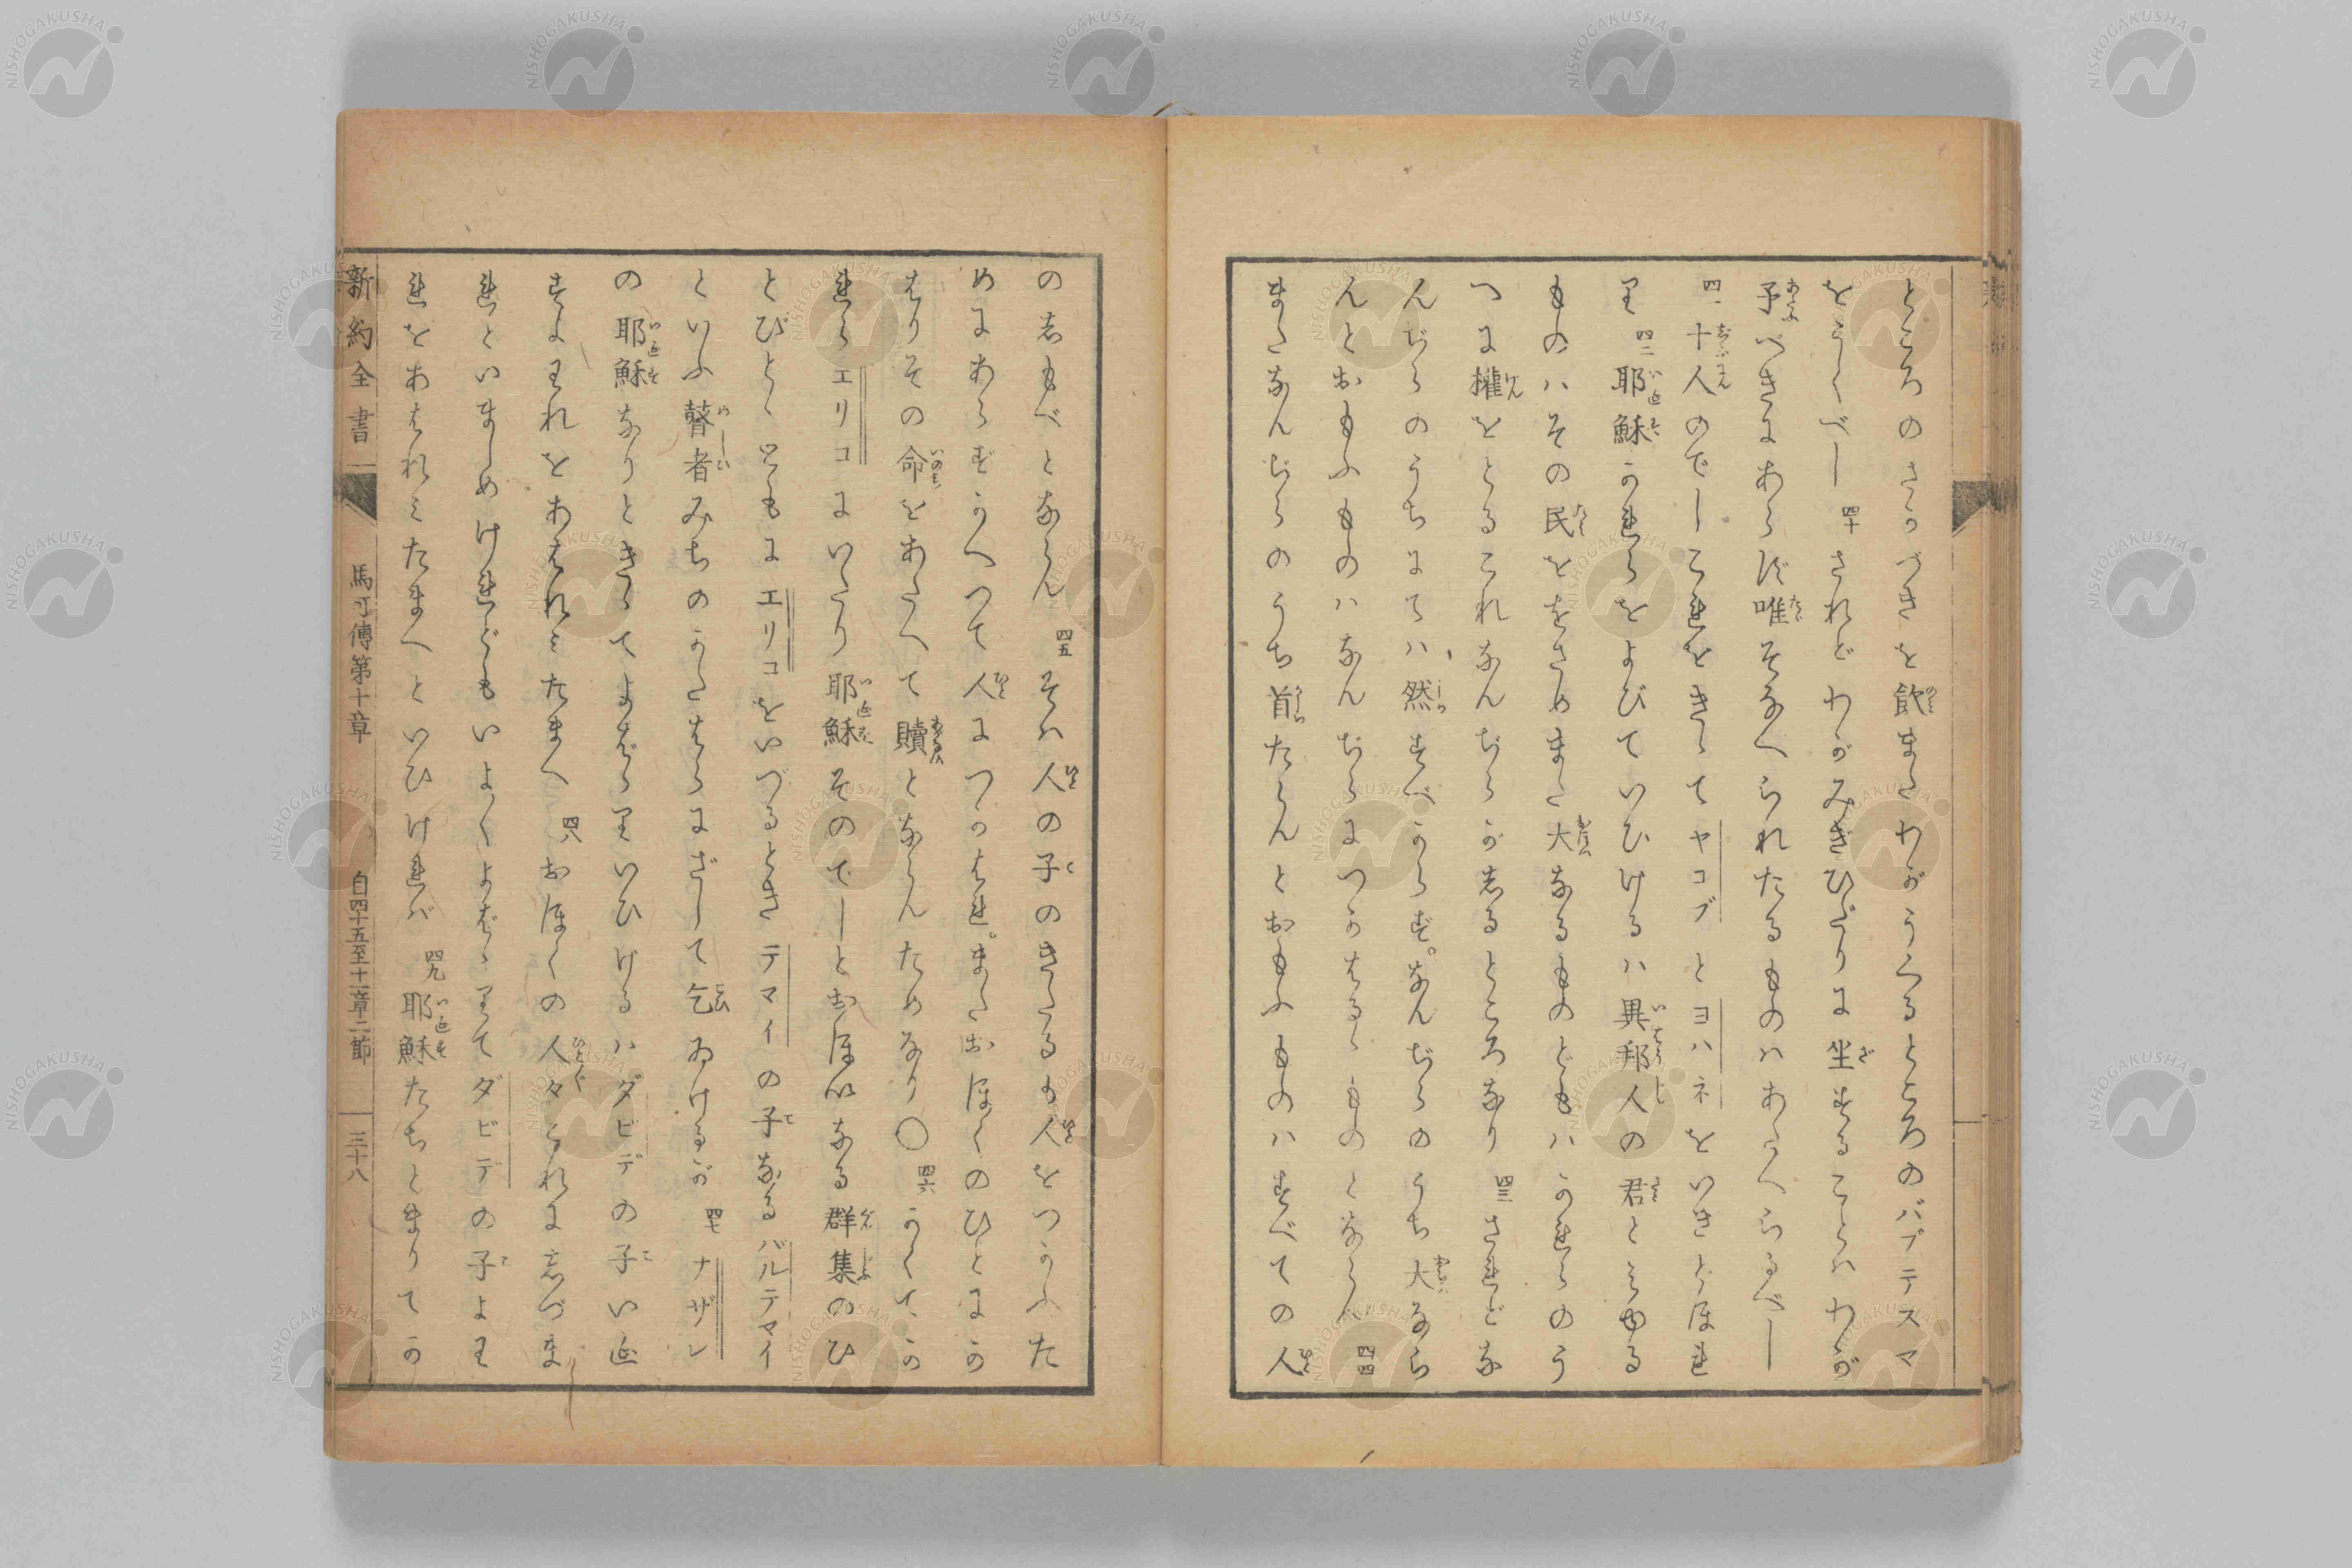 ところのさかづきを飲またわがうくるところのバプテスマ
をうくべし 四十 されどわがみぎひだりに坐することハわが
予べきにあらず唯そなへられたるものハあたへらるべし
四一 十人のでしこれをきゝてヤコブとヨハネをいきどほれ
り 四二 耶穌かれらをよびていひけるハ異邦人の君とみゆる
ものハその民ををさめまた大なるものどもハかれらのう
へに權をとるこれなんぢらが志るところなり 四三 されどな
んぢらのうちにてハ然すべからず。なんぢらのうち大なら
んとおもふものハなんぢらにつかはるゝものとならん 四四
またなんぢらのうち首たらんとおもふものハすべての人
の志もべとならん 四五 そハ人の子のきたるも人をつかふた
めにあらずかへつて人につかはれ。またおほくのひとにか
はりその命をあたへて贖とならんためなり〇 四六 かくてか
れらエリコにいたり耶穌そのでしとおほいなる群集のひ
とびとゝともにエリコをいづるときテマイの子なるバルテマイ
といふ瞽者みちのかたはらにざして乞ゐけるが 四七 ナザレ
の耶穌なりときゝてよばゝりいひけるハダビデの子い𛀁
すよわれをあはれみたまへ 四八 おほくの人々これに志づま
れといましめけれどもいよ〱よばゝりてダビデの子よわ
れをあはれみたまへといひけれバ 四九 耶穌たちとまりてか
新約全書 馬可傳第十章 自四十五至十一章二節 三十八